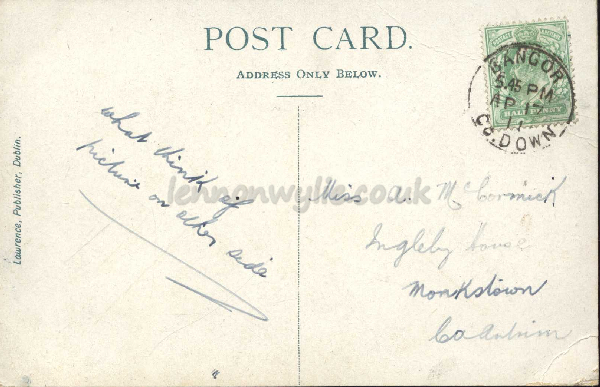 POST CARD.
ADDRESS ONLY BELOW.
BANGOR
5.45 PM
AP 15
11
CO. DOWN
HALFPENNY
Lawrence, Publisher, Dublin.
what think of
picture on other side
lennonwylie.co.uk
Miss A. McCormick
Ingleby House
Monkstown
Co Antrim